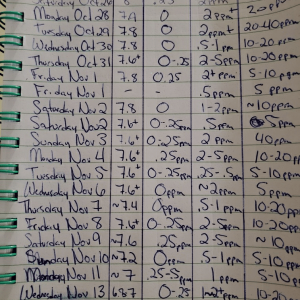 Monday Oct 28 7A 0 2ppm 20ppm
Tuesday Oct 29 7.8 0 2ppm+ 20-40ppm
Wednesday Oct 30 7.8 0 .5-1ppm 10-20ppm
Thursday Oct 31 7.6+ 0-.25 2-5ppm 10-20ppm
Friday Nov 1 7.8 0.25 2+ppm 5-10ppm
Friday Nov 1 - - .5ppm 5ppm
Saturday Nov 2 7.8 0 1-2ppm ~10ppm
Saturday Nov 2 7.6+ 0-.25ppm .5ppm 5ppm
Sunday Nov 3 7.6+ 0.25ppm 2ppm 40ppm
Monday Nov 4 7.6+ .25ppm 2-5ppm 10-20ppm
Tuesday Nov 5 7.6+ 0-.25ppm .25-.5ppm 5-10ppm
Wednesday Nov 6 7.6+ 0ppm ~2ppm 5ppm
Thursday Nov 7 ~7.4 0ppm .5-1ppm 10-20ppm
Friday Nov 8 7.6+ 0-.25ppm 2-5ppm 10-20ppm
Saturday Nov 9 ~7.6 .25ppm 2-5ppm ~10ppm
Sunday Nov 10 ~7.2 0ppm .5-1ppm 5-10ppm
Monday Nov 11 ~7 .25-.5ppm 1ppm 5-10ppm
Wednesday Nov 13 6.8.7 0-.25 10-20ppm